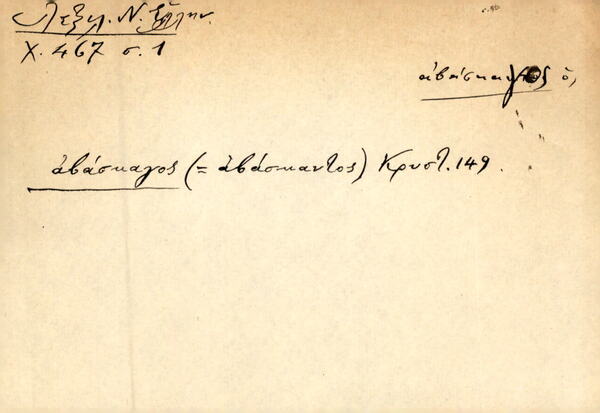 Λεξιλ. Ν. Ἑλλην.
Χ. 467 σ. 1
ἀβάσκαγος ὁ,
ἀβάσκαγος (= ἀβάσκαντος) Κρυστ. 149.